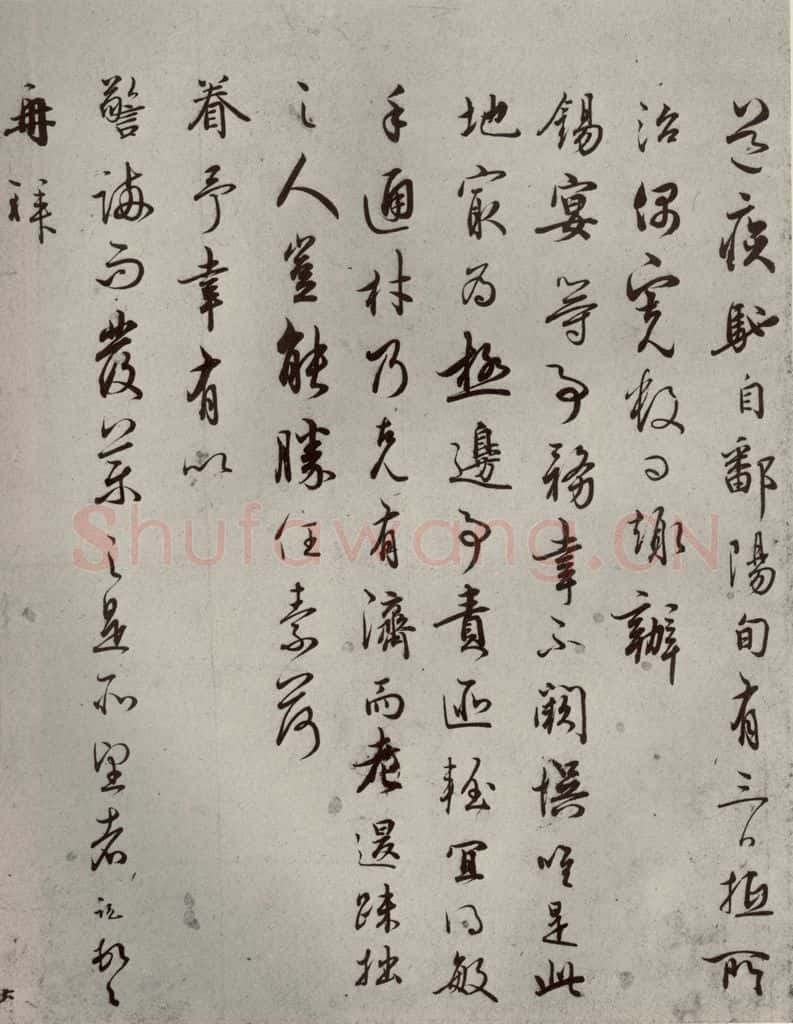 疾馳自鄱陽旬有三日抵所
治偶完数日頗辦
錫宴等事務幸不闕誤唯是此
地最為極邊事責匪輕宜得敏
手通材乃克有濟而老退踈拙
之人豈能勝任素荷
眷予幸有以
警誨而發藥之是所望者
再拜
Shufawang.CN